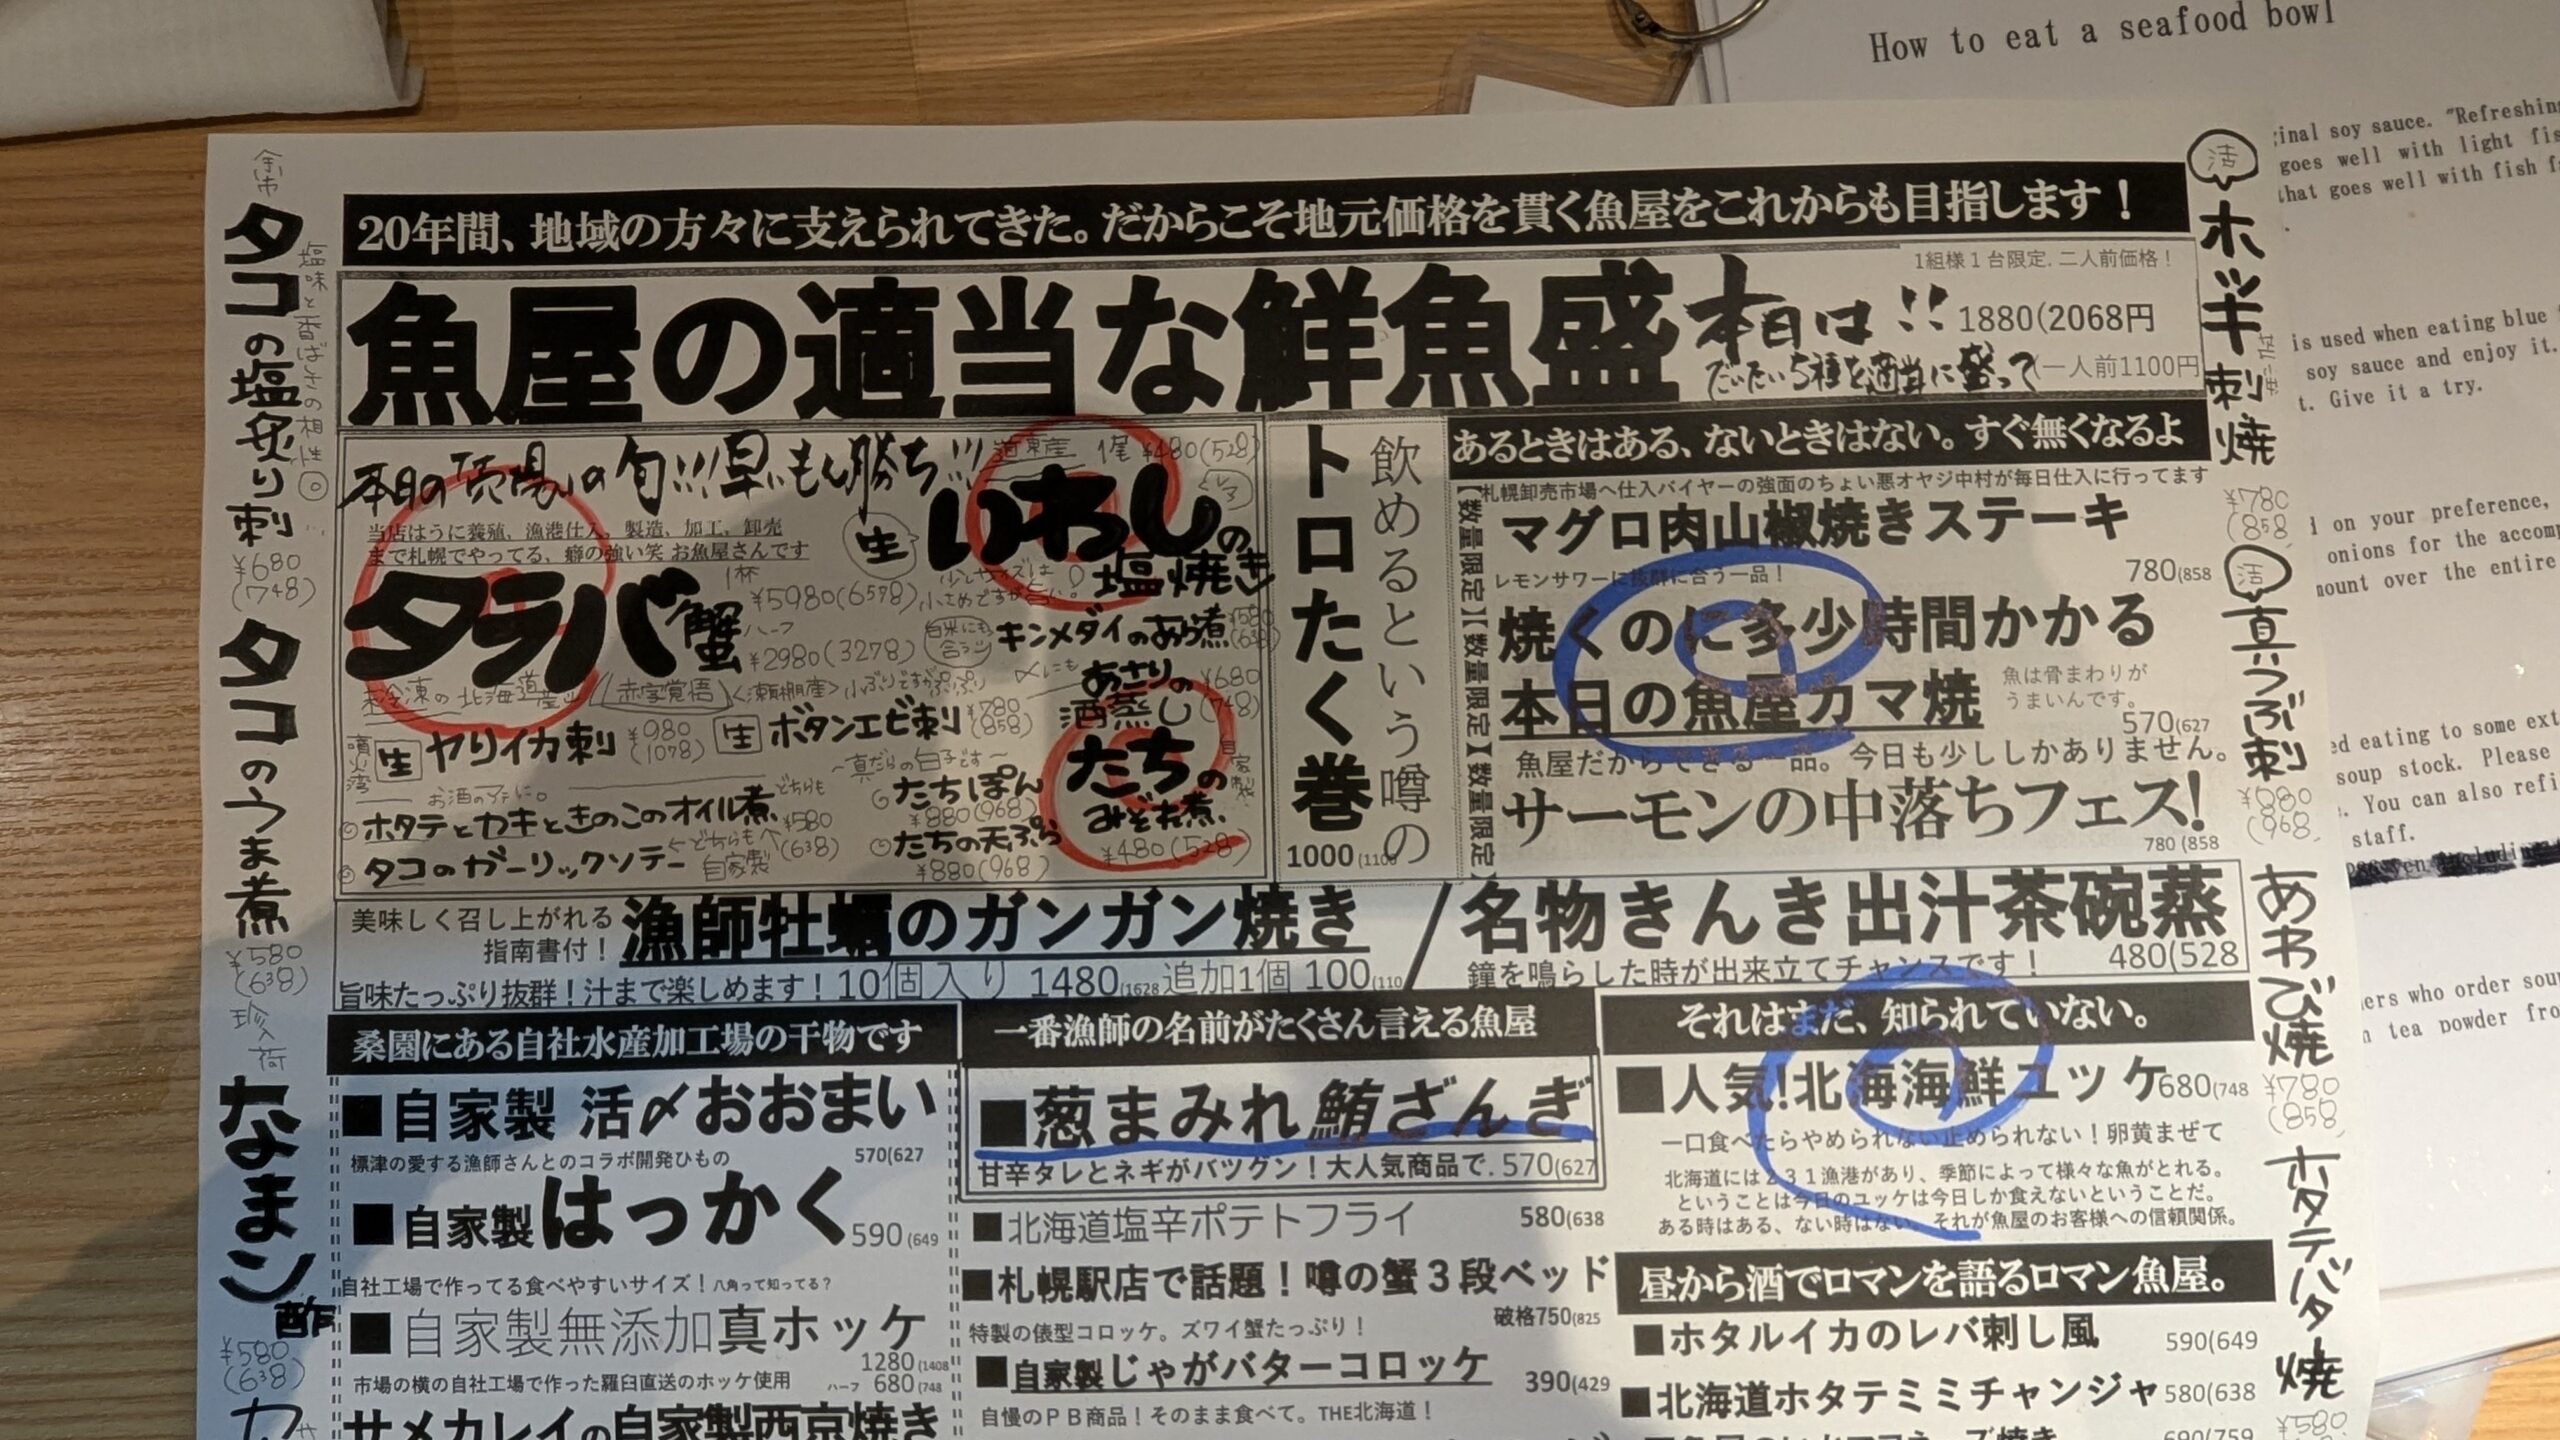 How to eat a seafood bowl
ginal soy sauce. "Refreshing
goes well with light fis
that goes well with fish f
is used when eating blue
soy sauce and enjoy it.
t. Give it a try.
on your preference,
onions for the accomp
mount over the entire
ed eating to some ext
soup stock. Please
. You can also refi
staff.
ers who order sou
tea powder fro
20年間、地域の方々に支えられてきた。だからこそ地元価格を貫く魚屋をこれからも目指します！
魚屋の適当な鮮魚盛
本日は!!
だいたい5種を適当に盛って
1組様1台限定. 二人前価格！
1880(2068円
(一人前1100円
本日の「売場」の旬!!!早いもん勝ち!!!
当店はうに養殖、漁港仕入、製造、加工、卸売
まで札幌でやってる、癖の強い笑 お魚屋さんです
タラバ蟹
1杯
¥5980(6578)
ハーフ
¥2980(3278)
未冷凍の北海道産
赤字覚悟
道東産 1尾 ¥480(528)
生 いわしの
塩焼き
白米にも合う
キンメダイのあら煮
¥580
(638)
〆にも
あさりの
酒蒸し
¥680
(748)
噴火湾
生 ヤリイカ刺
¥980
(1078)
小ぶりですがぷりぷり
生 ボタンエビ刺
¥780
(858)
お酒のアテに。
ホタテとカキときのこのオイル煮
どちらも
¥580
(638)
タコのガーリックソテー
どちらも
自家製
〜真だらの白子です〜
たちぽん
¥880(968)
たちの天ぷら
¥880(968)
自家製
たちの
みぞれ煮
¥480(528)
飲めるという噂の
トロたく巻
1000(1100
あるときはある、ないときはない。すぐ無くなるよ
札幌卸売市場へ仕入バイヤーの強面のちょい悪オヤジ中村が毎日仕入に行ってます
【数量限定】【数量限定】【数量限定】
マグロ肉山椒焼きステーキ
レモンサワーに抜群に合う一品！
780(858
焼くのに多少時間かかる
本日の魚屋カマ焼
魚は骨まわりが
うまいんです。
570(627
魚屋だからできる一品。今日も少ししかありません。
サーモンの中落ちフェス!
780 (858
美味しく召し上がれる
指南書付！
漁師牡蠣のガンガン焼き
旨味たっぷり抜群！汁まで楽しめます！10個入り 1480(1628 追加1個 100(110
名物きんき出汁茶碗蒸
鐘を鳴らした時が出来立てチャンスです！
480(528
桑園にある自社水産加工場の干物です
■自家製 活〆おおまい
標津の愛する漁師さんとのコラボ開発ひもの
570(627
■自家製はっかく
590(649
自社工場で作ってる食べやすいサイズ！八角って知ってる？
■自家製無添加真ホッケ
1280(1408
市場の横の自社工場で作った羅臼直送のホッケ使用
ハーフ 680(748
サメカレイの自家製西京焼き
一番漁師の名前がたくさん言える魚屋
■葱まみれ鮪ざんぎ
甘辛タレとネギがバツグン！大人気商品で. 570(627
■北海道塩辛ポテトフライ
580(638
■札幌駅店で話題！噂の蟹３段ベッド
破格750(825
特製の俵型コロッケ。ズワイ蟹たっぷり！
■自家製じゃがバターコロッケ
390(429
自慢のＰＢ商品！そのまま食べて。THE北海道！
それはまだ、知られていない。
■人気!北海海鮮ユッケ
680(748
一口食べたらやめられない止められない！卵黄まぜて
北海道には２３１漁港があり、季節によって様々な魚がとれる。
ということは今日のユッケは今日しか食えないということだ。
ある時はある、ない時はない。それが魚屋のお客様への信頼関係。
昼から酒でロマンを語るロマン魚屋。
■ホタルイカのレバ刺し風
590(649
■北海道ホタテミミチャンジャ
580(638
690(759
余市
タコの塩炙り刺
塩味と香ばしさの相性◎
¥680
(748)
タコのうま煮
¥580
(638)
珍入荷
なまこ酢
¥580
(638)
活
ホッキ刺 焼
¥780
(858)
活
真つぶ刺
¥880
(968)
あわび焼
¥780
(858)
ホタテバター焼
¥580